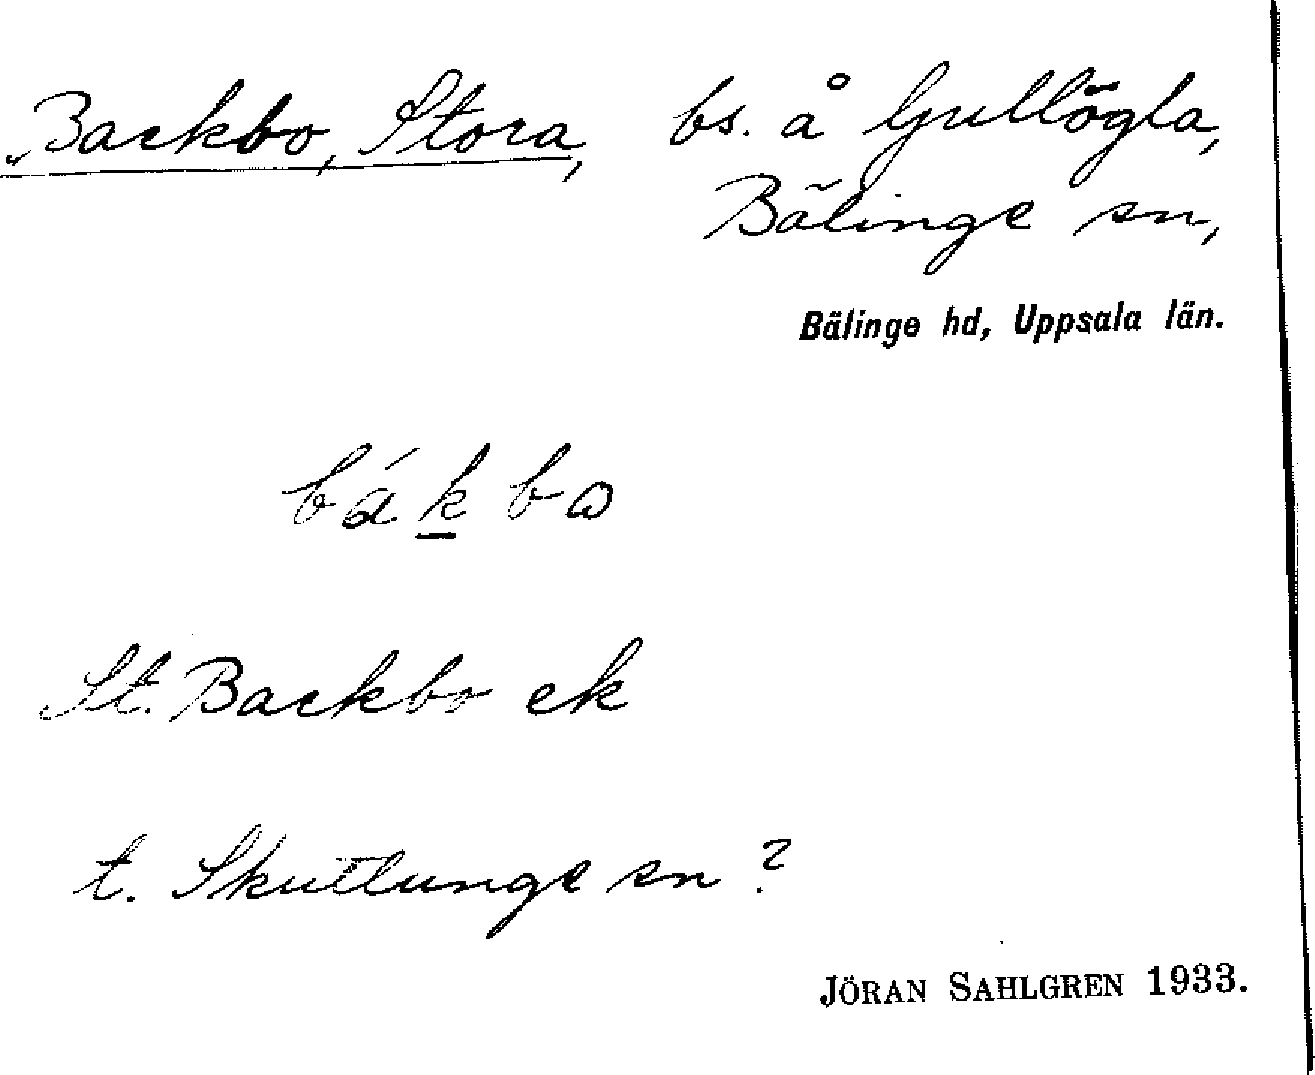 Backbo, Stora, bs. å Gullögla,
Bälinge sn,
Bälinge hd, Uppsala län.
bák̲bω
St. Backbo ek
t. Skuttunge sn ?
JÖRAN SAHLGREN 1933.